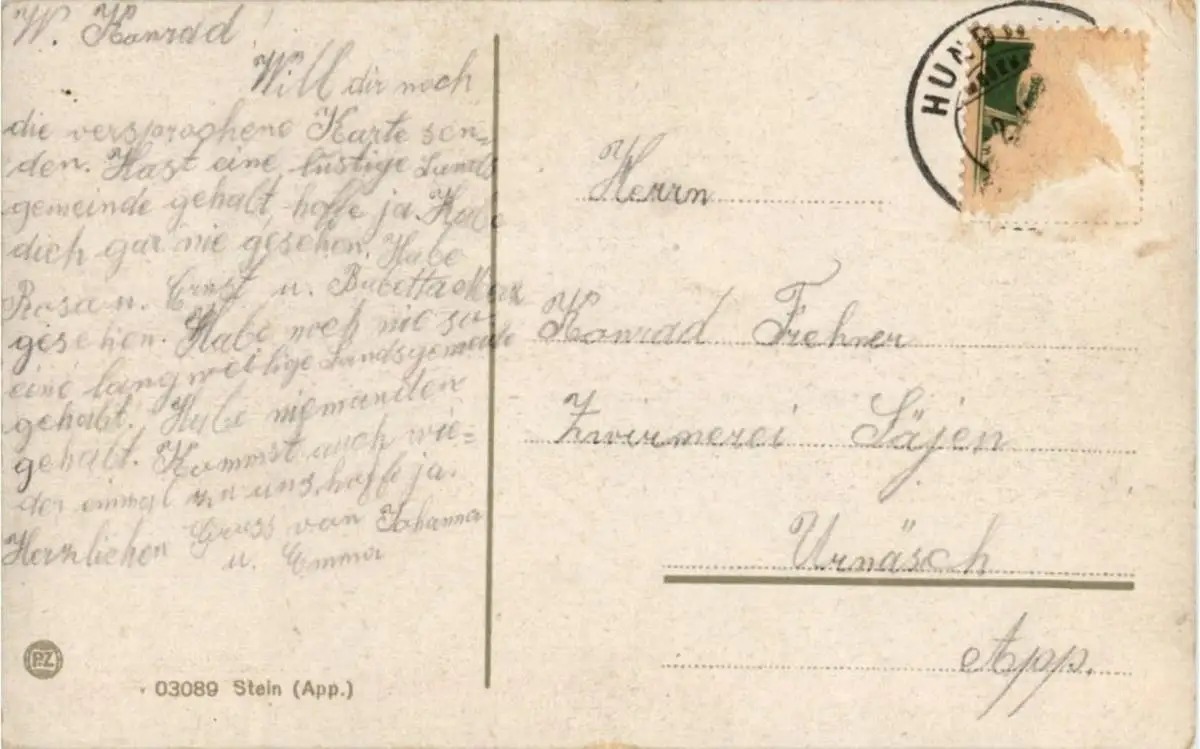 W. Konrad!
Will dir noch
die versprochene Karte sen=
den. Hast eine lustige Lands
gemeinde gehabt, hoffe ja. Habe
dich gar nie gesehen. Habe
Rosa u. Ernst u. Babetta
gesehen. Habe noch nie so
eine langweilige Landsgemeinde
gehabt. Habe niemanden
gehabt. Kommst auch wie=
der einmal zu uns, hoffe ja.
Herzlichen Gruss von Johanna
u. Emma
PZ
03089 Stein (App.)
HUND
Herrn
Konrad Frehner
Zwirnerei Säjen
Urnäsch
App.